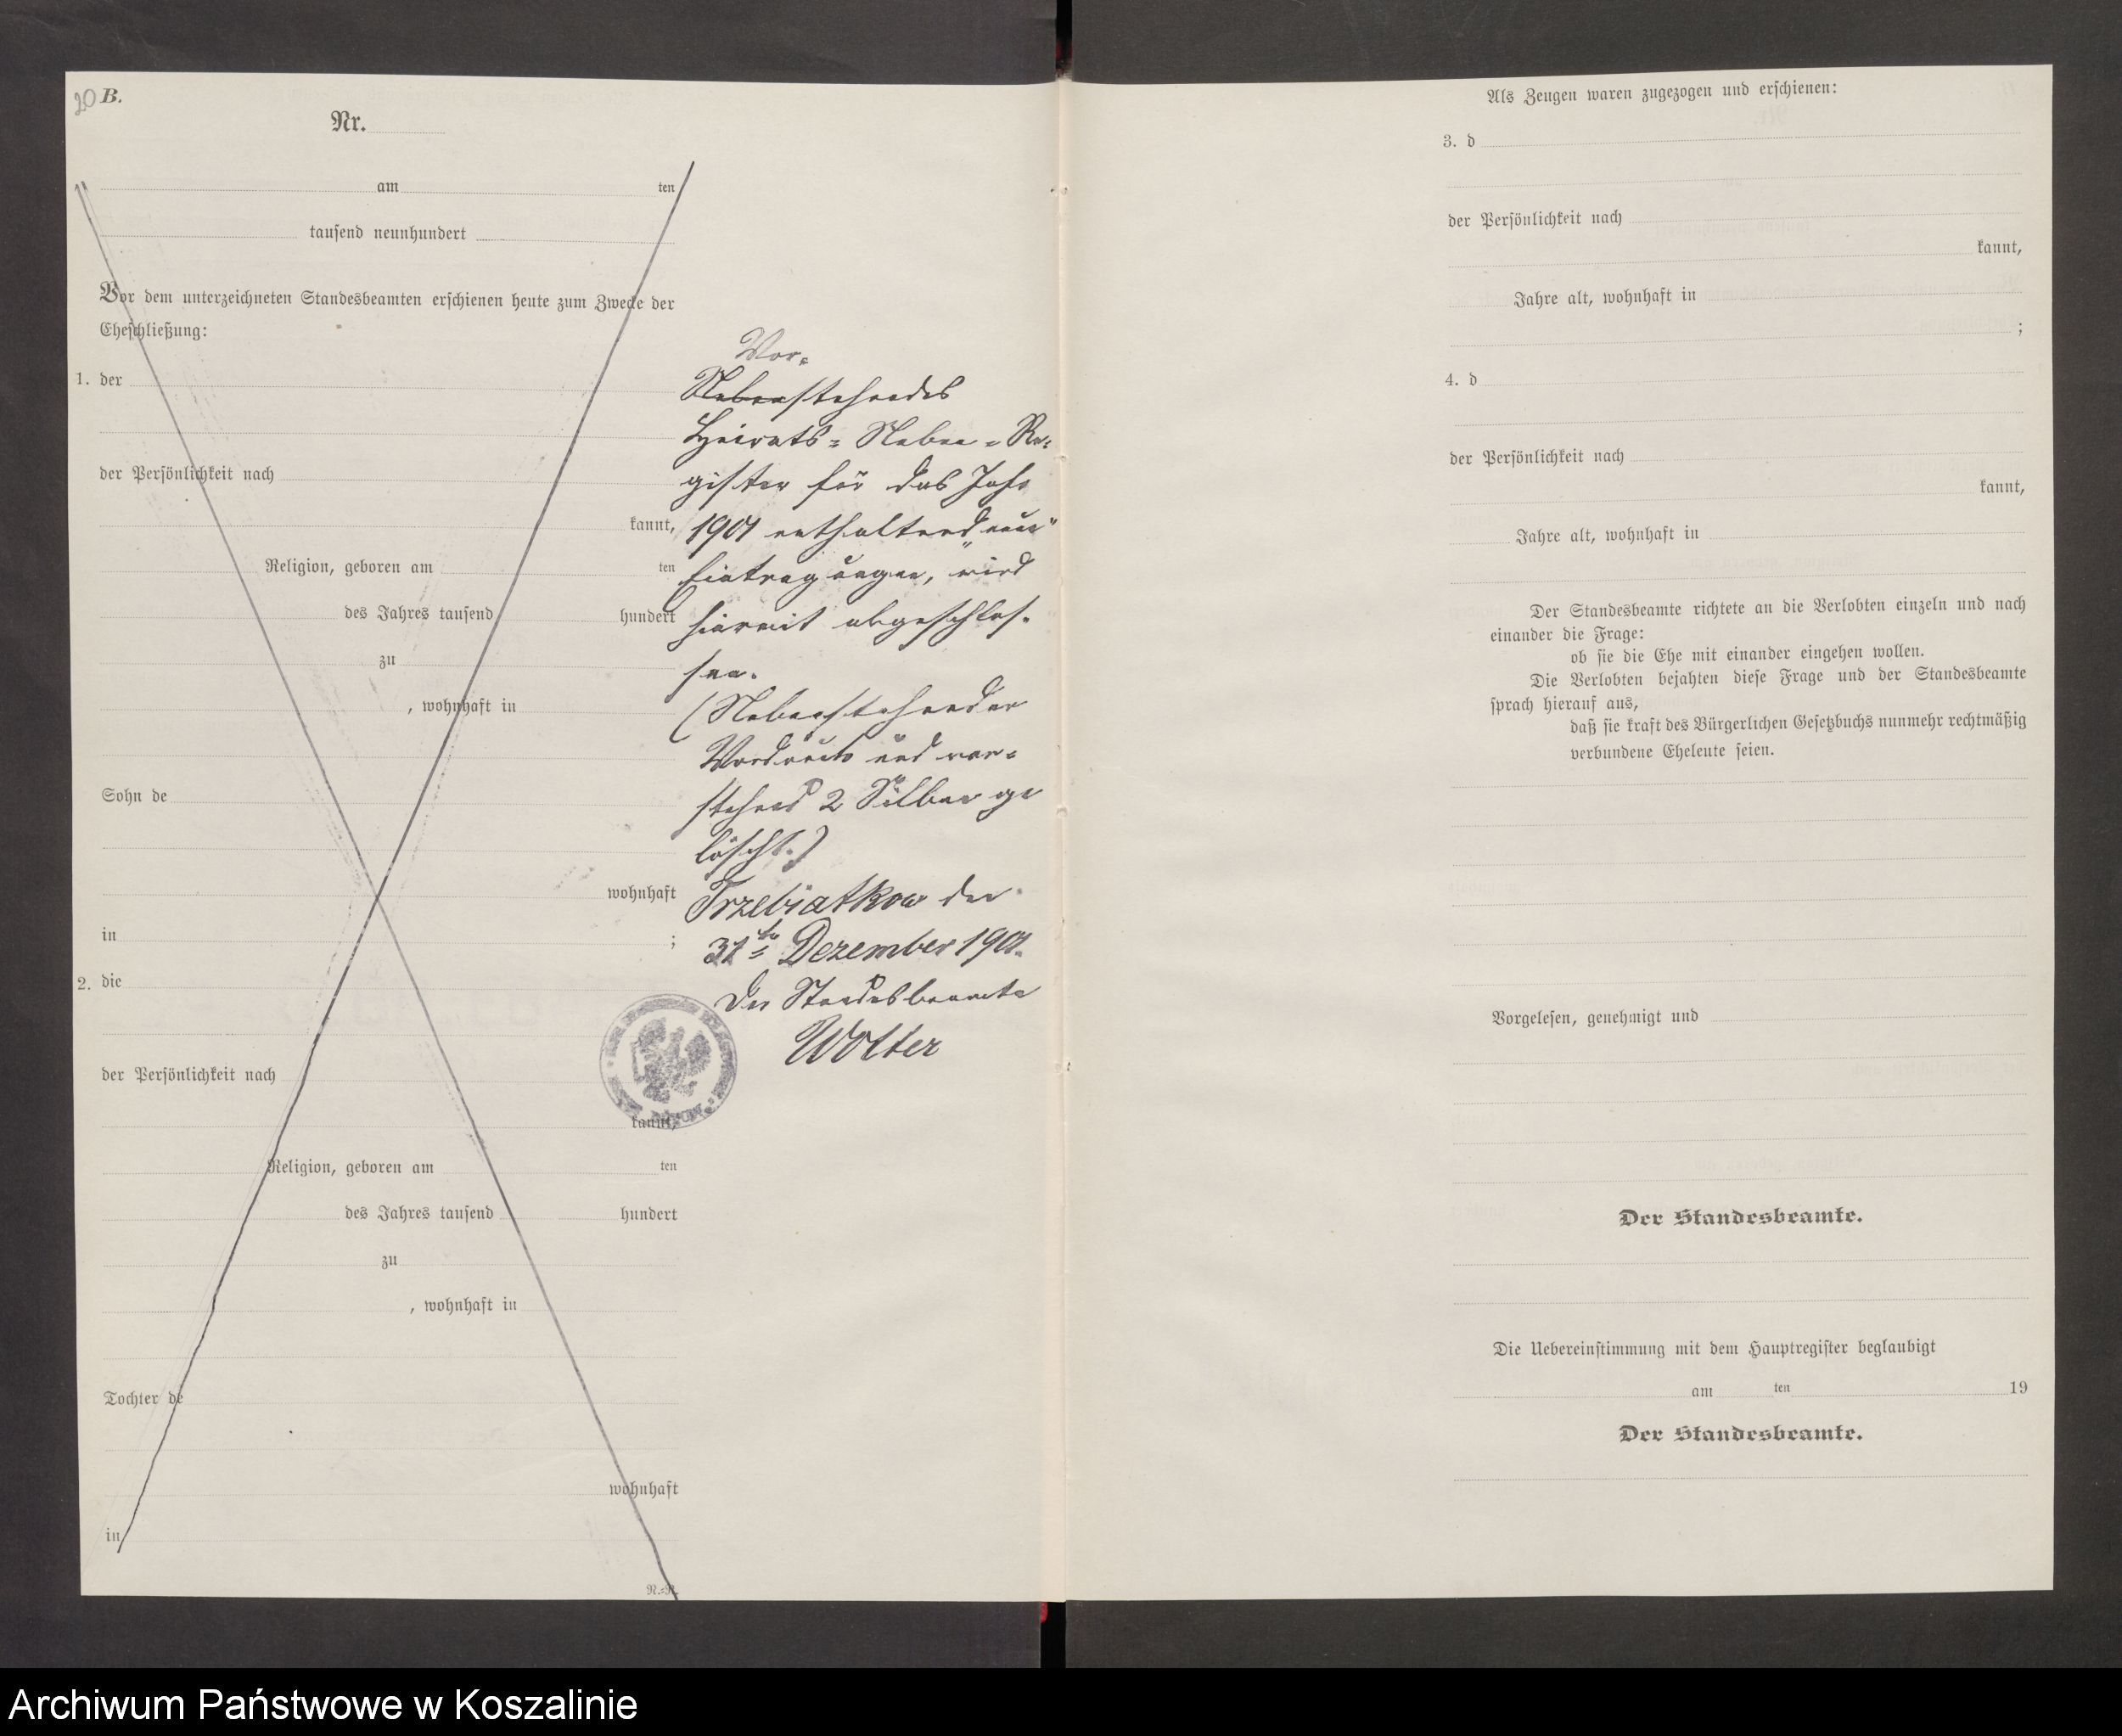 20 B.
Nr.
am ten
tausend neunhundert
Vor dem unterzeichneten Standesbeamten erschienen heute zum Zwecke der
Eheschließung:
1. der
der Persönlichkeit nach
kannt,
Religion, geboren am ten
des Jahres tausend hundert
zu
, wohnhaft in
Sohn de
wohnhaft
in ;
2. die
der Persönlichkeit nach
kannt,
Religion, geboren am ten
des Jahres tausend hundert
zu
, wohnhaft in
Tochter de
wohnhaft
in
Vor-
Nebenstehendes
Heirats- Neben-Re-
gister für das Jahr
1901 enthaltend „neun“
Eintragungen, wird
hiermit abgeschlos-
sen.
(Nebenstehender
Vordruck und vor-
stehend 2 Silben ge
löscht.)
Trzebiatkow den
31ten Dezember 1901.
Der Standesbeamte
Wolter
Als Zeugen waren zugezogen und erschienen:
3. d
der Persönlichkeit nach
kannt,
Jahre alt, wohnhaft in
;
4. d
der Persönlichkeit nach
kannt,
Jahre alt, wohnhaft in
Der Standesbeamte richtete an die Verlobten einzeln und nach
einander die Frage:
ob sie die Ehe mit einander eingehen wollen.
Die Verlobten bejahten diese Frage und der Standesbeamte
sprach hierauf aus,
daß sie kraft des Bürgerlichen Gesetzbuchs nunmehr rechtmäßig
verbundene Eheleute seien.
Vorgelesen, genehmigt und
Der Standesbeamte.
Die Uebereinstimmung mit dem Hauptregister beglaubigt
am ten 19
Der Standesbeamte.
Archiwum Państwowe w Koszalinie